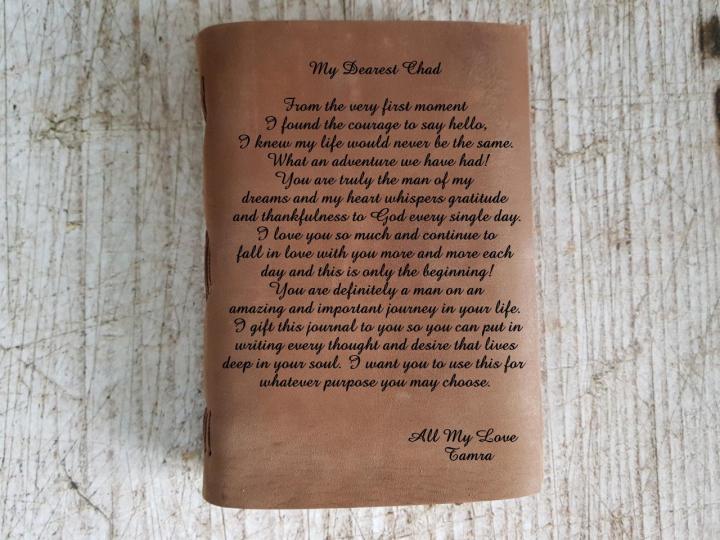 My Dearest Chad
From the very first moment
I found the courage to say hello,
I knew my life would never be the same.
What an adventure we have had!
You are truly the man of my
dreams and my heart whispers gratitude
and thankfulness to God every single day.
I love you so much and continue to
fall in love with you more and more each
day and this is only the beginning!
You are definitely a man on an
amazing and important journey in your life.
I gift this journal to you so you can put in
writing every thought and desire that lives
deep in your soul. I want you to use this for
whatever purpose you may choose.
All My Love
Tamra